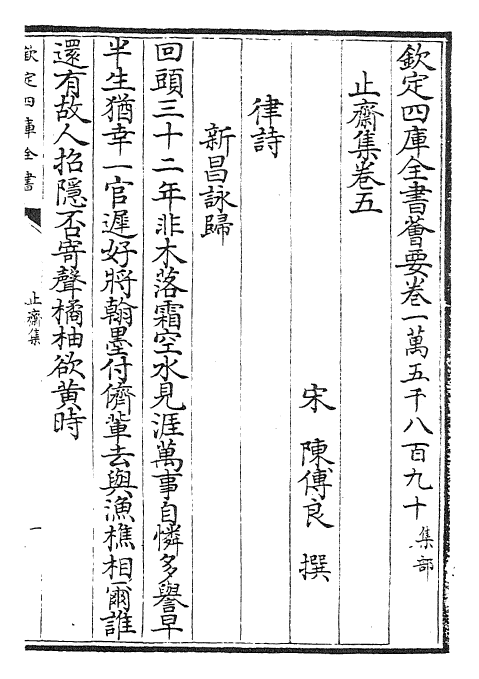 欽定四庫全書薈要卷一萬五千八百九十集部
止齋集卷五
宋 陳傅良 撰
律詩
新昌詠歸
回頭三十二年非木落霜空水見涯萬事自憐多譽早
半生猶幸一官遲好將翰墨付儕軰去與漁樵相爾誰
還有故人招隱否寄聲橘柚欲黄時
欽定四庫全書
止齋集
一